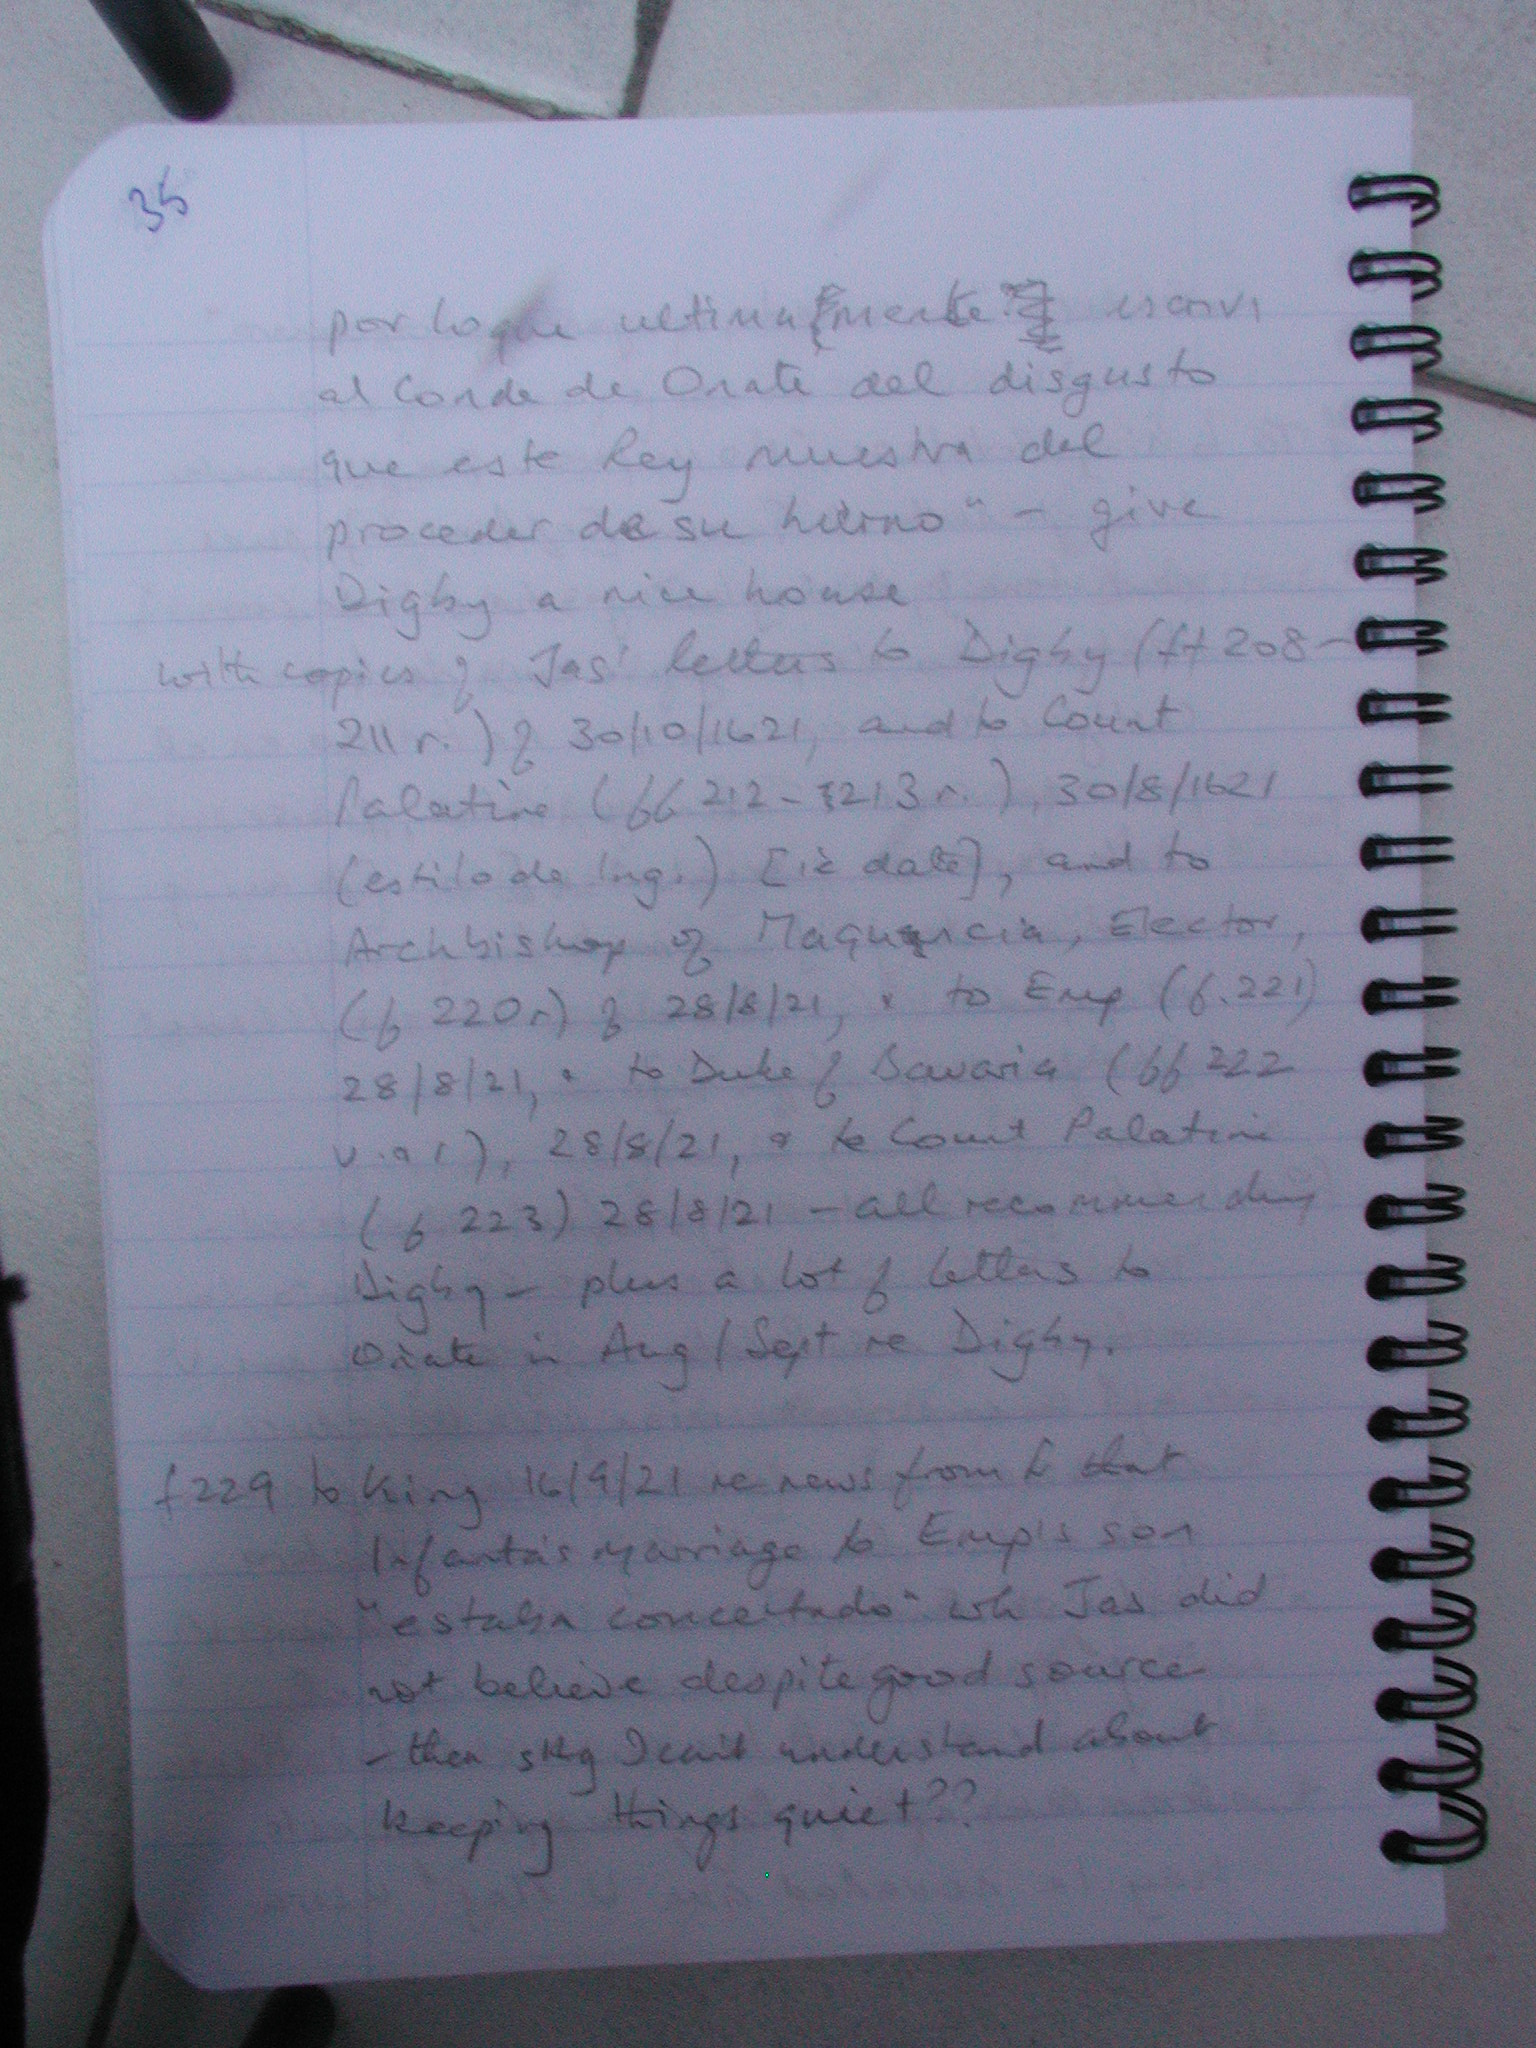 35
por lo que ultimamente escrivi
al Conde de Onate del disgusto
que este Rey muestra del
proceder de su hierno" - give
Digby a nice house
with copies of Jas' letters to Digby (ff 208-
211 r.) of 30/10/1621, and to Count
Palatine (ff 212-213 r.), 30/8/1621
(estilo de Ing.) [ie date], and to
Archbishop of Maguncia, Elector,
(f 220r) of 28/8/21, & to Emp (f. 221)
28/8/21, & to Duke of Bavaria (ff 222
v.), 28/8/21, & to Count Palatine
(f 223) 28/8/21 - all recommending
Digby - plus a lot of letters to
Onate in Aug/Sept re Digby.
f229 to King 16/9/21 re news from that
Infanta's marriage to Emp's son
"estaba concertado" wh Jas did
not believe despite good source
- then sthg I can't understand about
keeping things quiet??